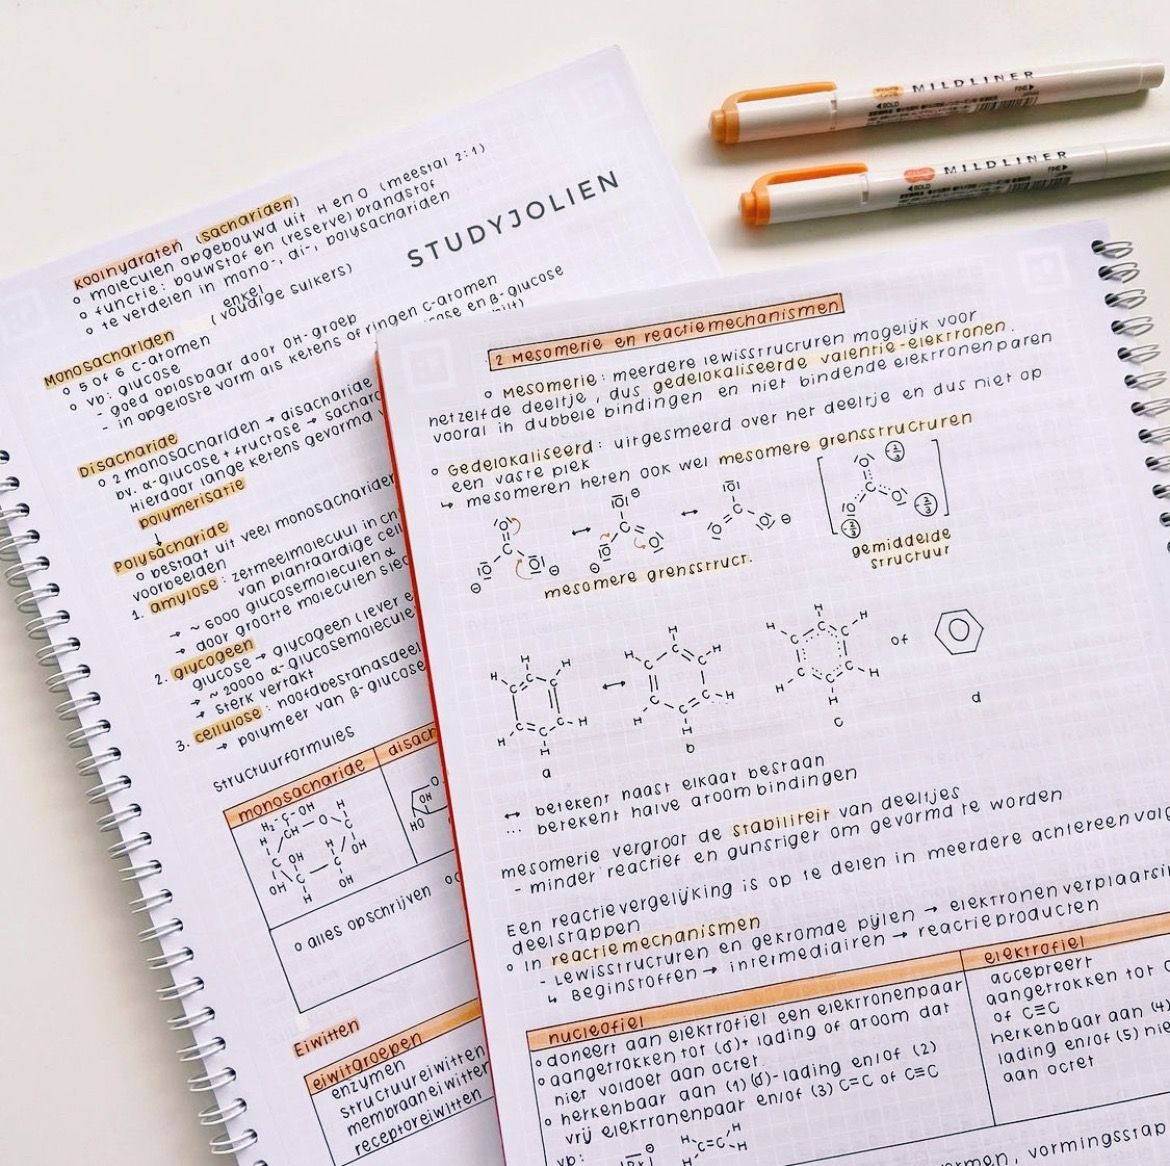 MILDLINER
BOLD
FINE
MILDLINER
BOLD
FINE
STUDYJOLIEN
koolhydraten (sachariden)
o moleculen opgebouwd uit H en O (meestal 2:1)
o functie: bouwstof en (reserve) brandstof
o te verdelen in mono-, di-, polysachariden
enkel
Monosachariden (voudige suikers)
o 5 of 6 C-atomen
o vb: glucose
- goed oplosbaar door OH-groep
- in opgeloste vorm als ketens of ringen C-atomen
ose en β-glucose
Disacharide
o 2 monosachariden → disacharide
bv. α-glucose + fructose → sacharo
Hierdoor lange ketens gevormd
polymerisatie
↓
Polysacharide
o bestaat uit veel monosachariden
voorbeelden
1. amylose: zetmeelmolecuul in ch
van plantaardige cell
→ ~ 6000 glucosemoleculen α
→ door grootte moleculen slec
2. glycogeen
glucose → glycogeen (lever e
→ ~ 20000 α-glucosemolecule
→ sterk vertakt
3. cellulose: hoofdbestandsdeel
→ polymeer van β-glucose
Structuurformules
monosacharide disach
H2-C-OH H
H CH-O C
C OH H OH
OH C C
H OH
OH
HO
o alles opschrijven
Eiwitten
eiwitgroepen
enzymen
structuureiwitten
membraaneiwitten
receptoreiwitten
2 Mesomerie en reactiemechanismen
o Mesomerie: meerdere lewisstructuren mogelijk voor
hetzelfde deeltje, dus gedelokaliseerde valentie-elektronen.
vooral in dubbele bindingen en niet bindende elektronenparen
o Gedelokaliseerd: uitgesmeerd over het deeltje en dus niet op
een vaste plek
↳ mesomeren heten ook wel mesomere grensstructuren
O C O O ↔ O C O O ↔ O C O O
O C O O 2/3 2/3 2/3
mesomere grensstruct.
gemiddelde
structuur
H H H H C-H H ↔ H H C C-H C-H H H C
H H H C C C C C C H H H of
a b c d
↔ betekent naast elkaar bestaan
... betekent halve atoombindingen
mesomerie vergroot de stabiliteit van deeltjes
- minder reactief en gunstiger om gevormd te worden
Een reactievergelijking is op te delen in meerdere achtereenvolg
deelstappen
o In reactiemechanismen
- Lewisstructuren en gekromde pijlen → elektronenverplaatsi
↳ Beginstoffen → intermediairen → reactieproducten
nucleofiel
o doneert aan elektrofiel een elektronenpaar
o aangetrokken tot (δ)+ lading of atoom dat
niet voldoet aan octet
o herkenbaar aan (1) (δ)-lading en/of (2)
vrij elektronenpaar en/of (3) C=C of C≡C
vb: Br ⊖ H H C=C H H
elektrofiel
accepteert
aangetrokken tot
of C≡C
herkenbaar aan (4)
lading en/of (5) nie
aan octet
ormen, vormingsstap